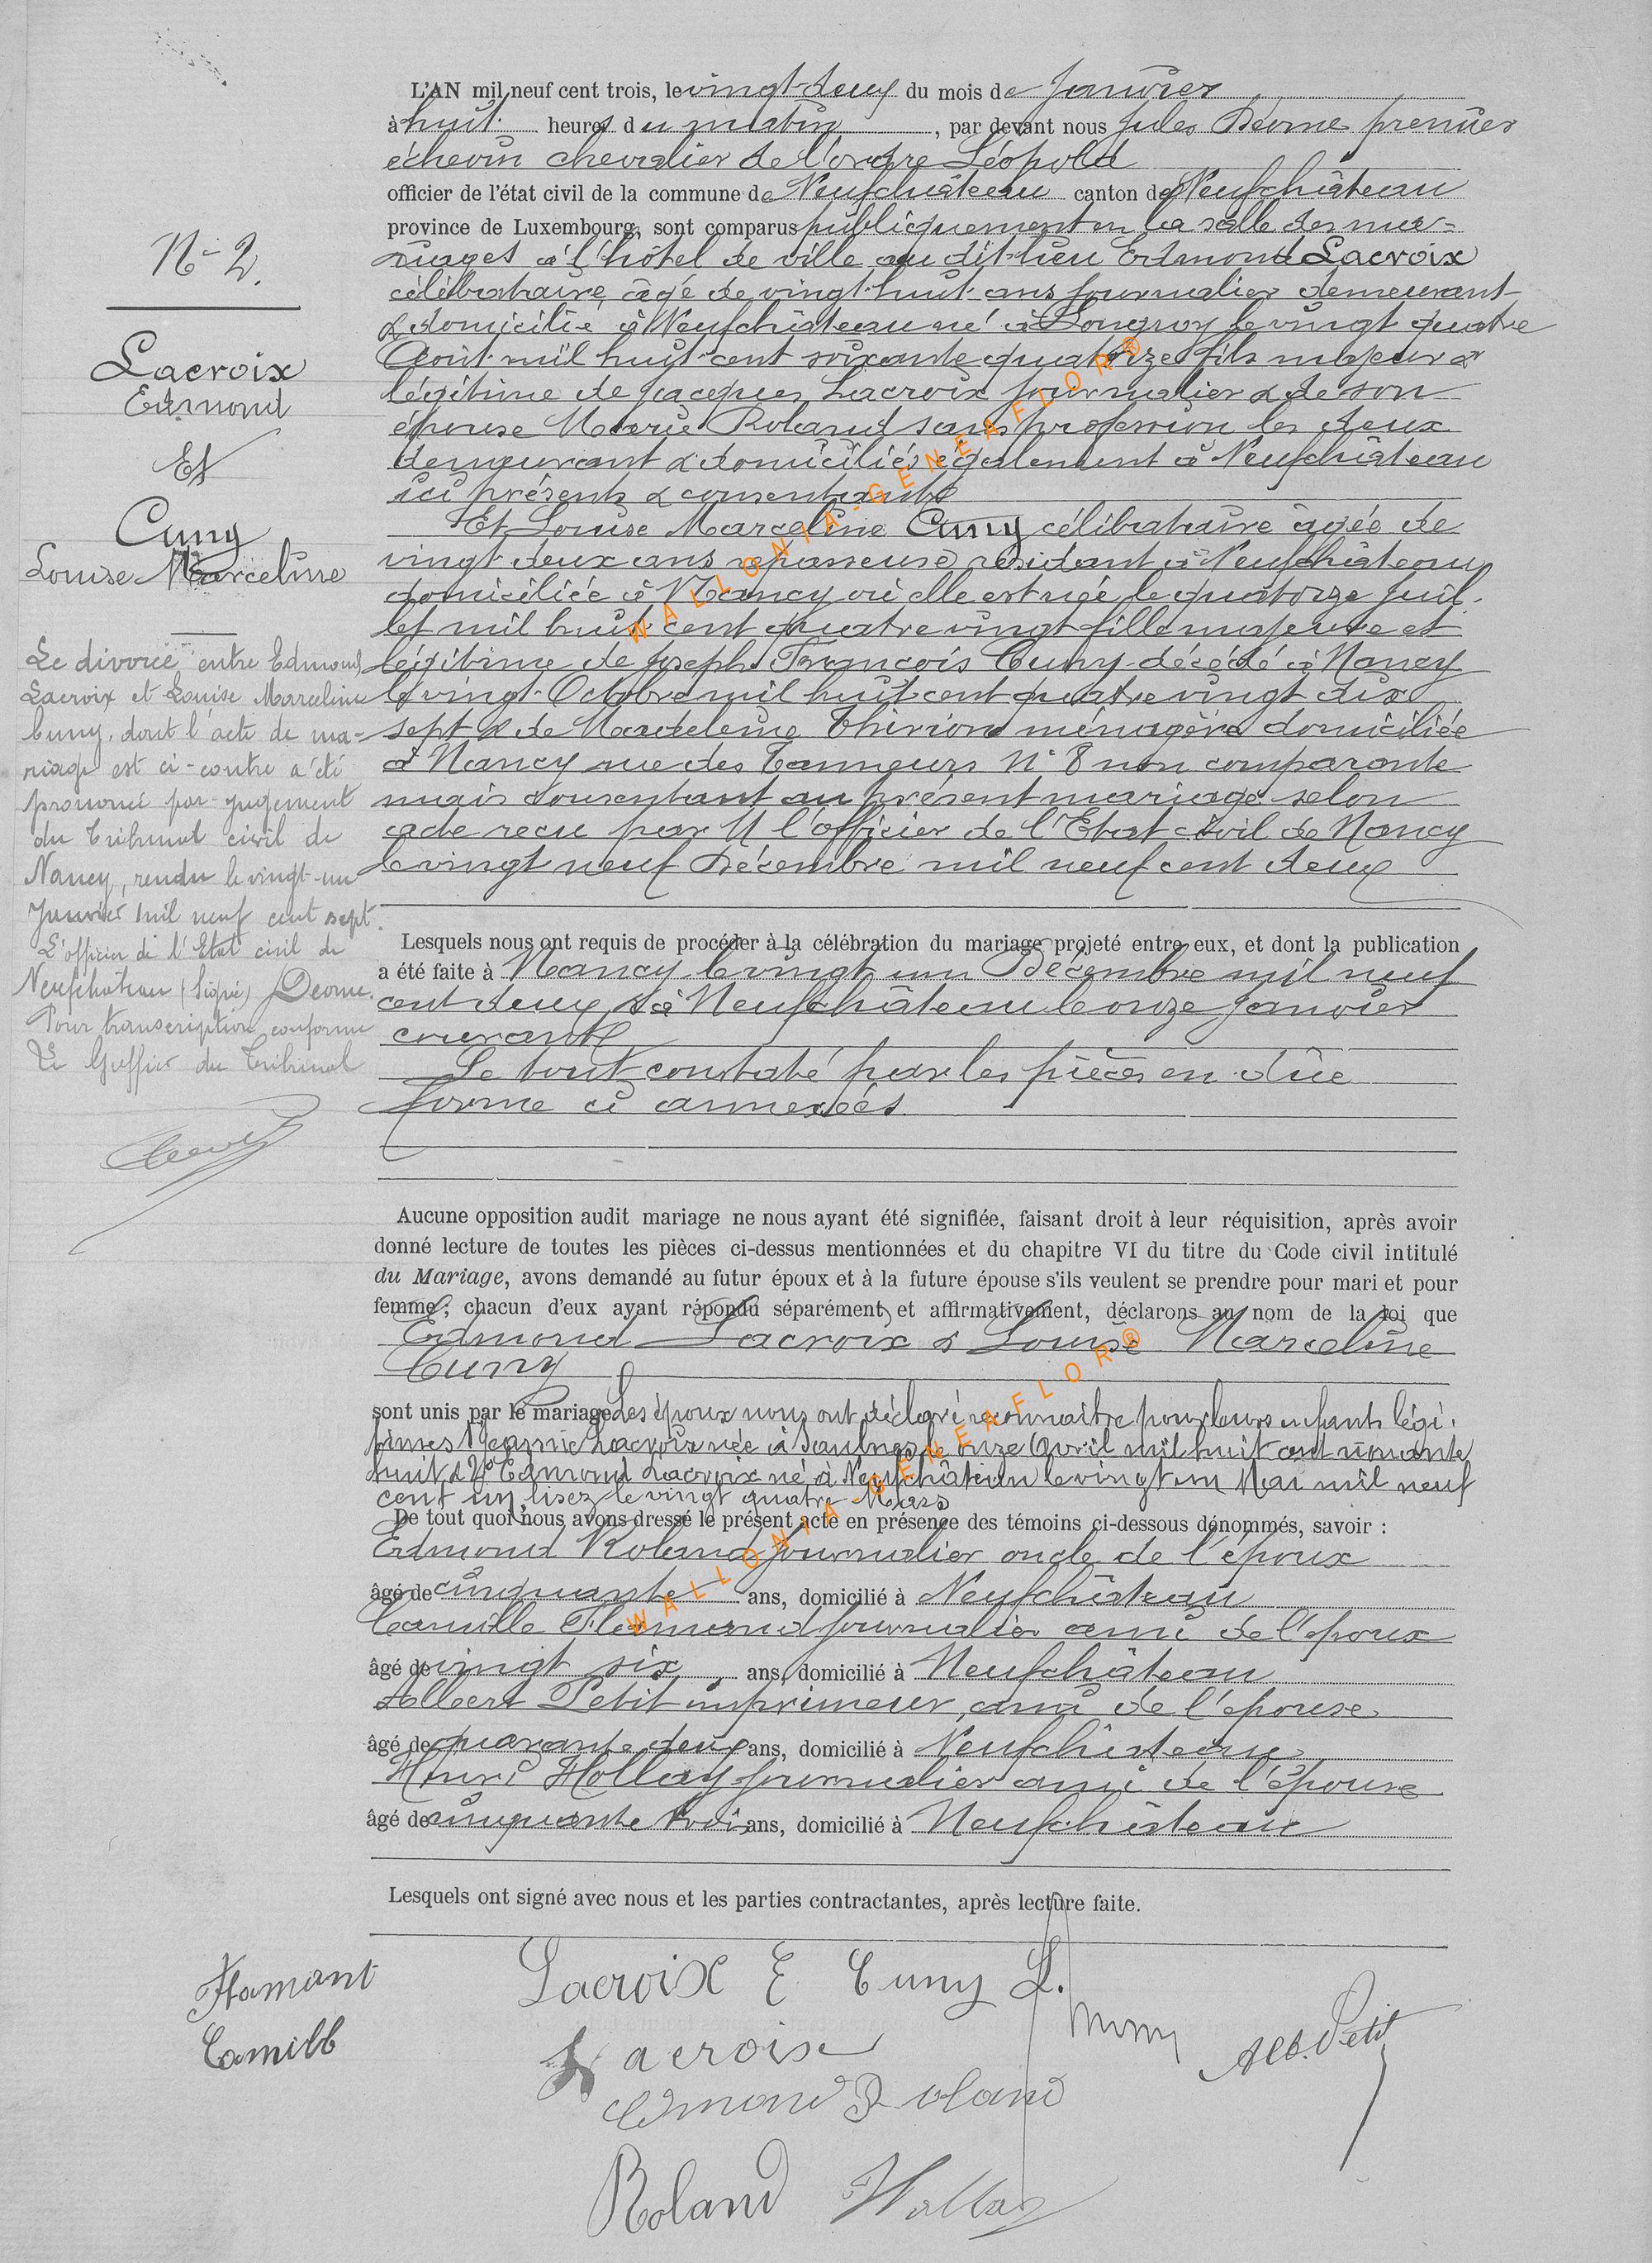 L'AN mil neuf cent trois, le vingt-deux du mois de Janvier
à huit heures du matin, par devant nous Jules Déome premier
échevin chevalier de l'ordre Léopold
officier de l'état civil de la commune de Neufchâteau canton de Neufchâteau
province de Luxembourg, sont comparus publiquement en la salle des ma=
riages à l'hôtel de ville au dit lieu Edmond Lacroix
célibataire âgé de vingt-huit ans journalier demeurant
& domicilié à Neufchâteau né à Longwy le vingt quatre
Août mil huit cent soixante quatorze fils majeur &
légitime de Jacques Lacroix journalier & de son
épouse Marie Roland sans profession les deux
demeurant & domiciliés également à Neufchâteau
ici présents & consentants
Et Louise Marceline Cuny célibataire âgée de
vingt deux ans repasseuse résidant à Neufchâteau
domiciliée à Nancy où elle est née le quatorze Juil-
let mil huit cent quatre vingt fille majeure et
légitime de Joseph François Cuny décédé à Nancy
le vingt Octobre mil huit cent quatre vingt dix
sept & de Madeleine Thirion ménagère domiciliée
à Nancy rue des Tanneurs N° 8 non comparante
mais consentant au présent mariage selon
acte reçu par M l'officier de l'Etat civil de Nancy
le vingt neuf Décembre mil neuf cent deux
N° 2.
Lacroix
Edmond
Et
Cuny
Louise Marceline
Le divorce entre Edmond
Lacroix et Louise Marceline
Cuny, dont l'acte de ma-
riage est ci-contre a été
prononcé par jugement
du Tribunal civil de
Nancy, rendu le vingt-un
Janvier mil neuf cent sept.
L'officier de l'Etat civil de
Neufchâteau (Signé) Déome.
Pour transcription conforme
Le Greffier du Tribunal
Lesquels nous ont requis de procéder à la célébration du mariage projeté entre eux, et dont la publication
a été faite à Nancy le vingt un Décembre mil neuf
cent deux & à Neufchâteau le onze Janvier
courant
Le tout constaté par les pièces en dûe
forme ci annexées
Aucune opposition audit mariage ne nous ayant été signifiée, faisant droit à leur réquisition, après avoir
donné lecture de toutes les pièces ci-dessus mentionnées et du chapitre VI du titre du Code civil intitulé
du Mariage, avons demandé au futur époux et à la future épouse s'ils veulent se prendre pour mari et pour
femme; chacun d'eux ayant répondu séparément et affirmativement, déclarons au nom de la loi que
Edmond Lacroix & Louise Marceline
Cuny
sont unis par le mariage Les époux nous ont déclaré reconnaître pour leurs enfants légi-
times 1° Jeanne Lacroix née à Saulnes le onze Avril mil huit cent nonante
huit & 2° Edmond Lacroix né à Neufchâteau le vingt un Mai mil neuf
cent un, lisez le vingt quatre Mars
De tout quoi nous avons dressé le présent acte en présence des témoins ci-dessous dénommés, savoir :
Edmond Roland journalier oncle de l'époux
âgé de cinquante ans, domicilié à Neufchâteau
Camille Flamand journalier ami de l'époux
âgé de vingt six ans, domicilié à Neufchâteau
Albert Petit imprimeur, ami de l'épouse
âgé de quarante deux ans, domicilié à Neufchâteau
Henri Hollay journalier ami de l'épouse
âgé de cinquante trois ans, domicilié à Neufchâteau
Lesquels ont signé avec nous et les parties contractantes, après lecture faite.
Flamant
Camill
Lacroix E Cuny L.
Lacroix
Alb. Petit
Edmond Roland
Roland Hollay
WALLONIA-GENEAFLOR®
WALLONIA-GENEAFLOR®